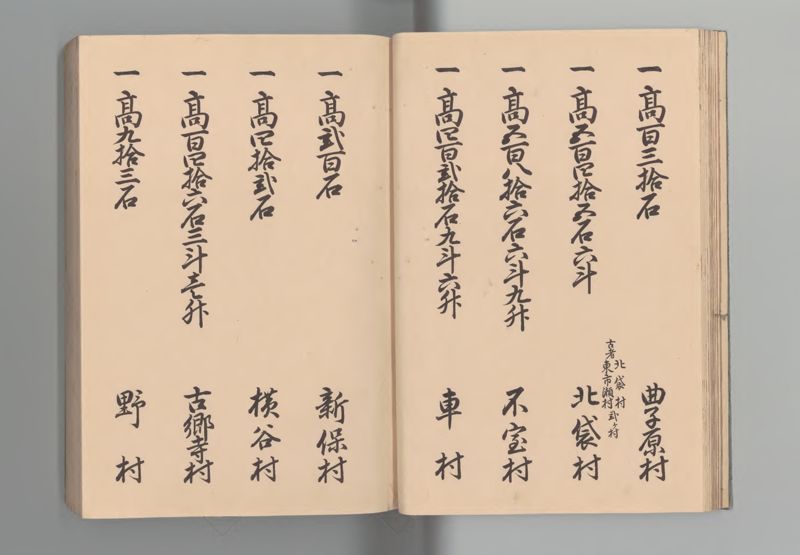 一高百三拾石 曲子原村
一高五百四拾五石六斗 北袋村
北袋村
古者東市瀬村弐ヶ村
一高五百八拾六石六斗九升 不室村
一高四百弐拾石九斗六升 車村
一高弐百石 新保村
一高四拾弐石 横谷村
一高百四拾六石三斗壱升 古郷寺村
一高九拾三石 野村